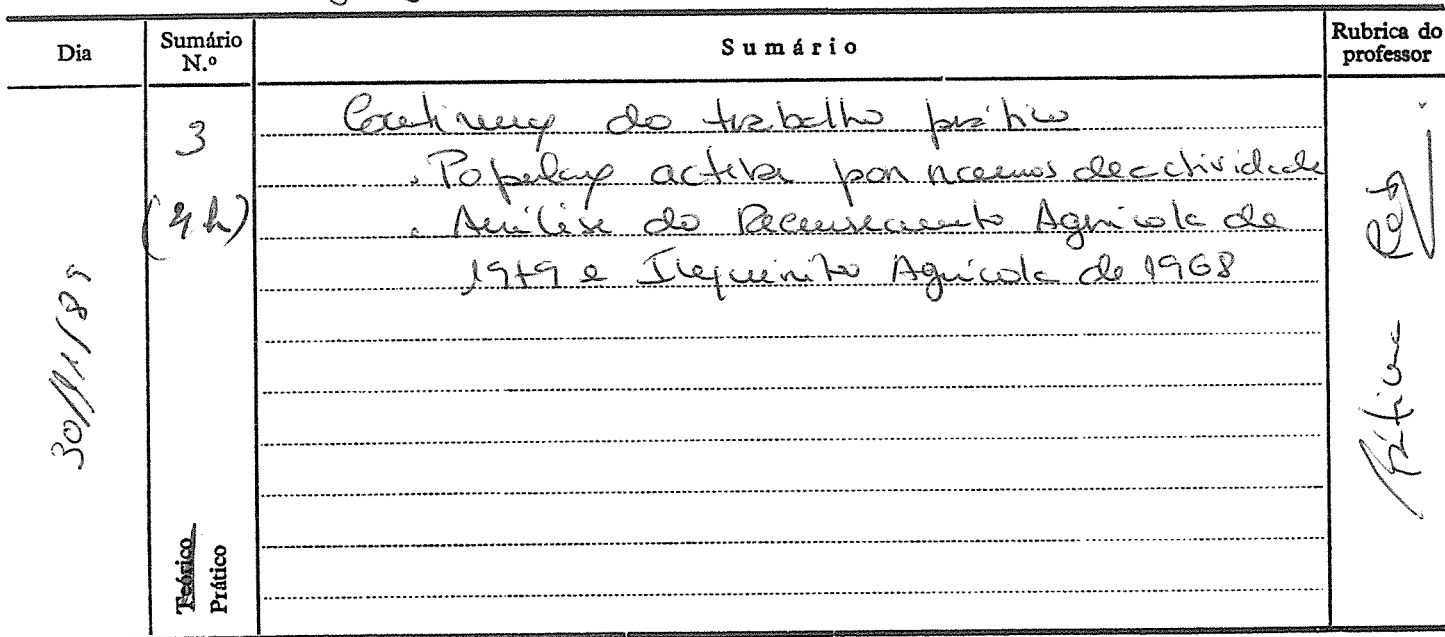 Dia
Sumário N.º
Sumário
Rubrica do professor
30/11/89
3
(4 h)
Continuação do trabalho prático
. População activa por ramos de actividade
. Análise do Recenseamento Agrícola de
1979 e Inquérito Agrícola de 1968
Teórico
Prático